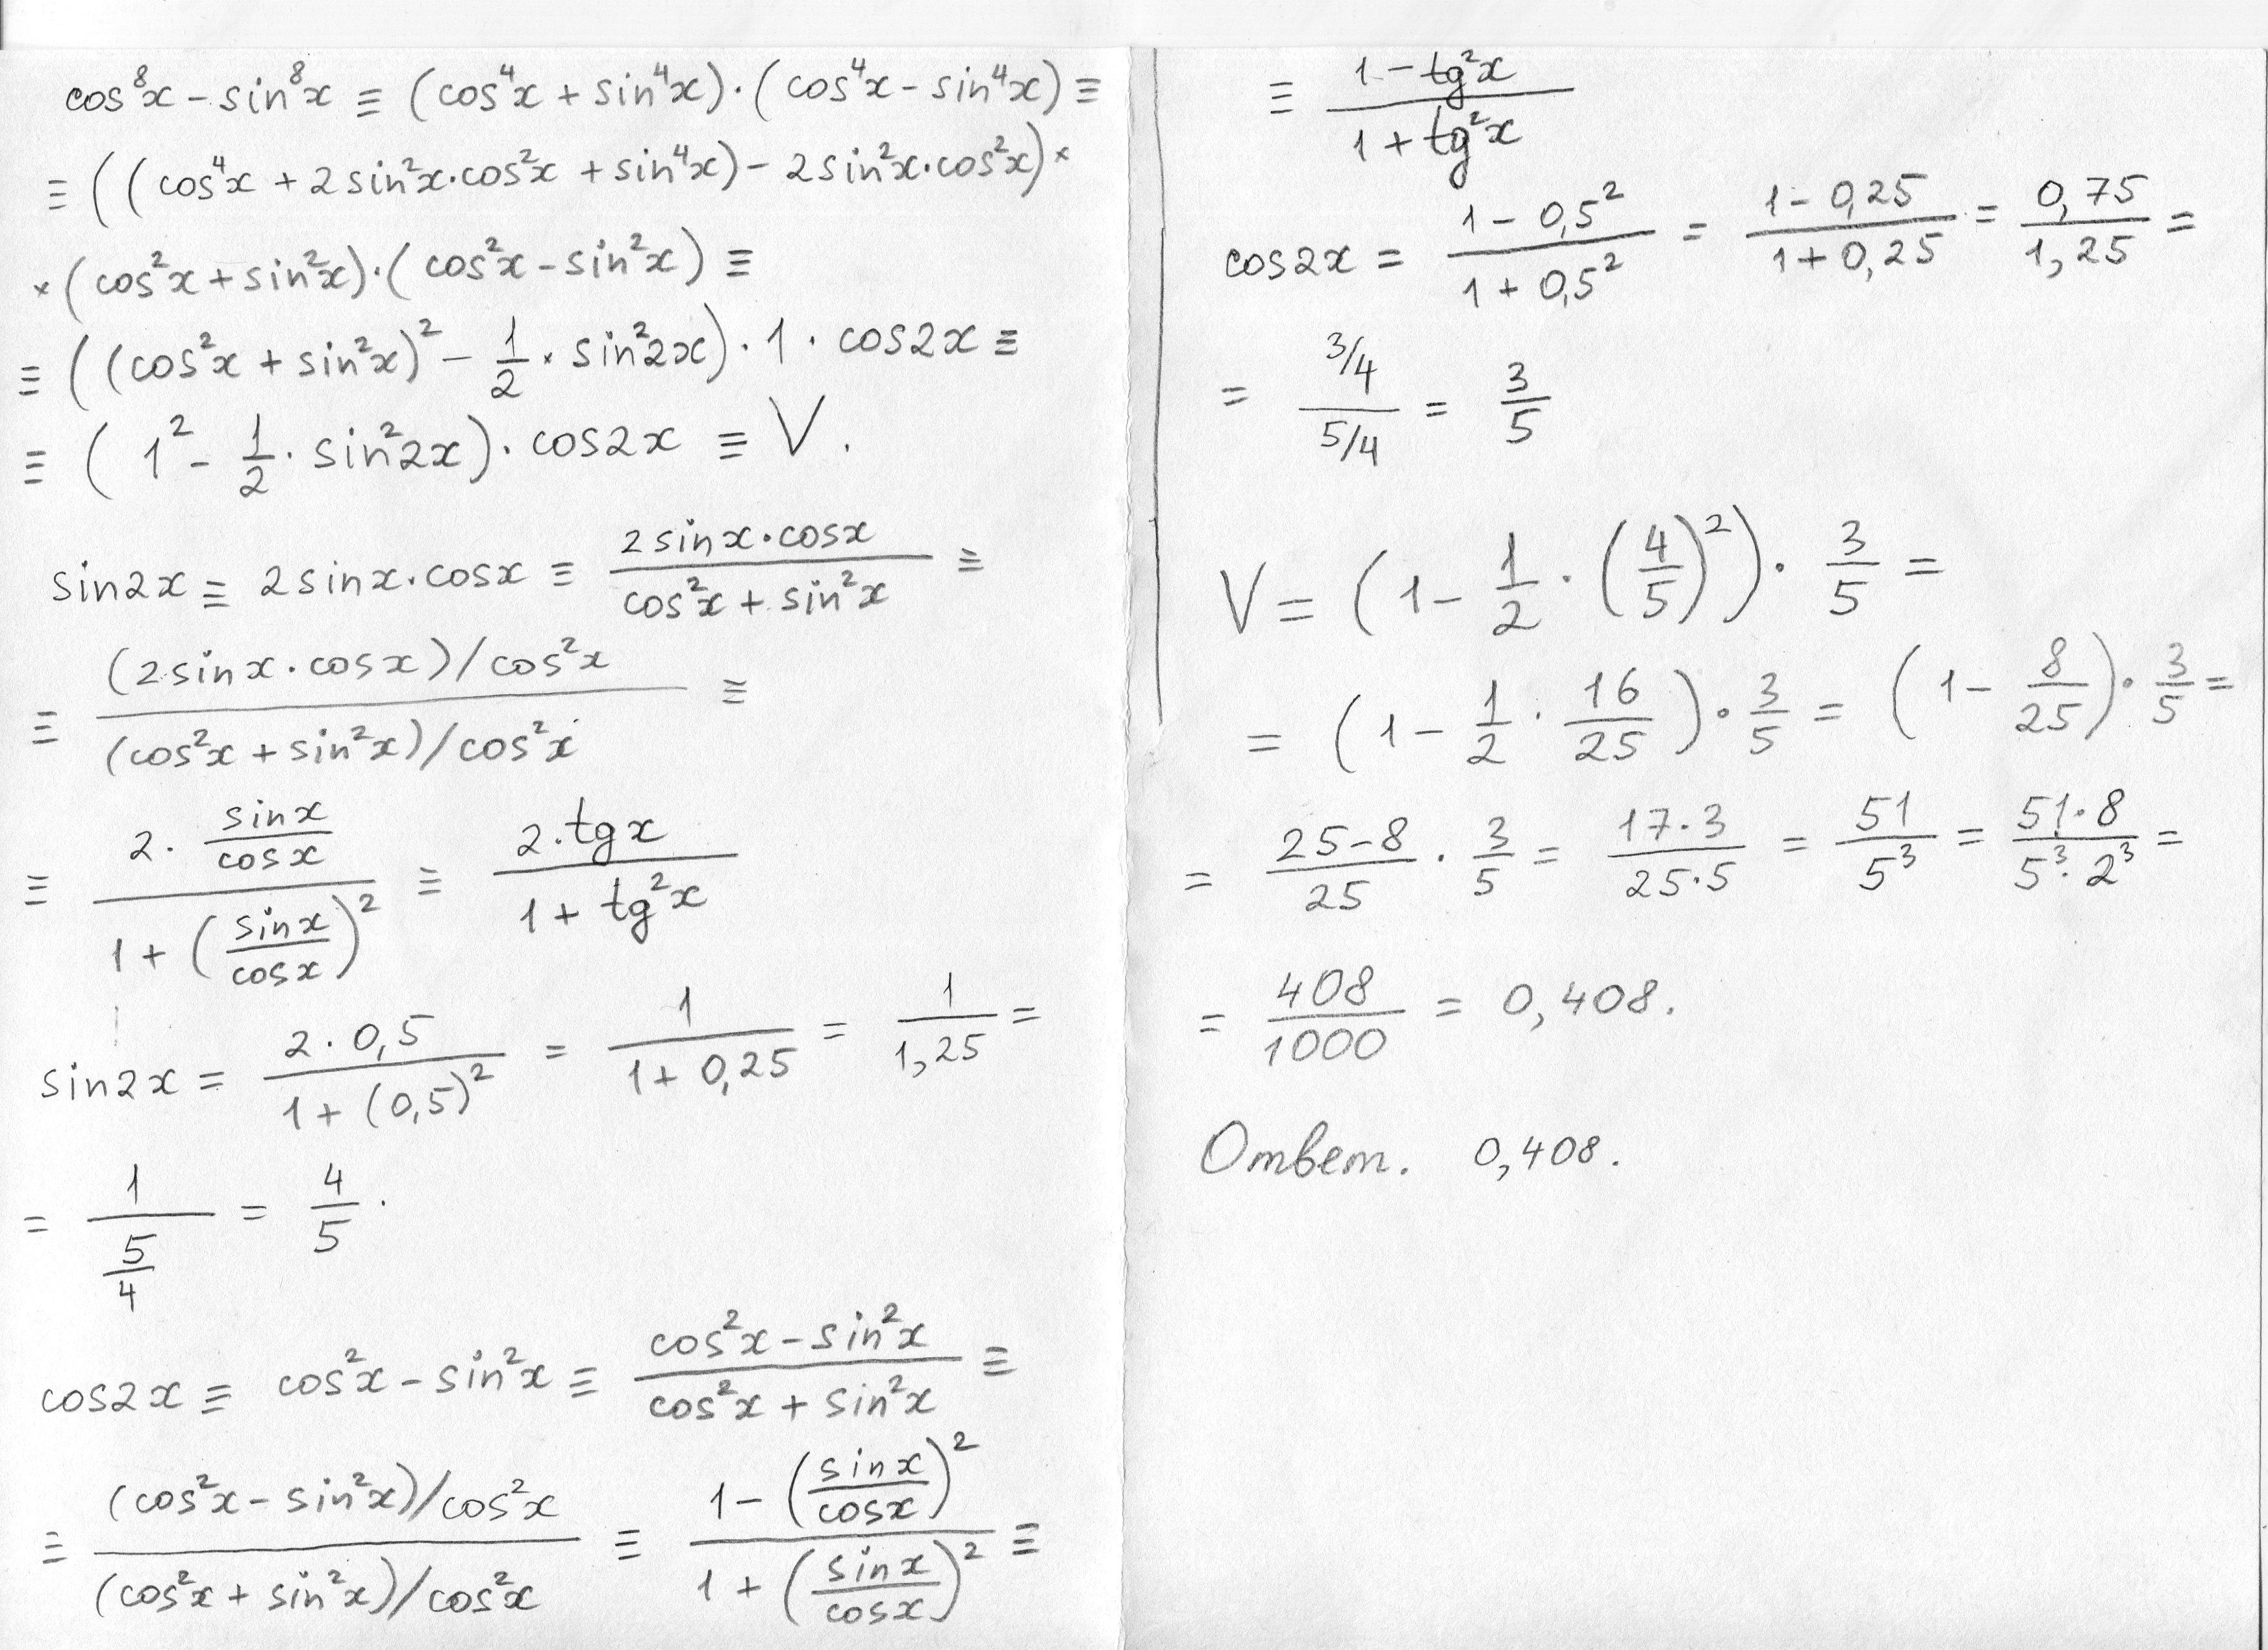 cos⁸x − sin⁸x ≡ (cos⁴x + sin⁴x)·(cos⁴x − sin⁴x) ≡
≡ ((cos⁴x + 2sin²x·cos²x + sin⁴x) − 2sin²x·cos²x) ×
× (cos²x + sin²x)·(cos²x − sin²x) ≡
≡ ((cos²x + sin²x)² − 1/2 × sin²2x)·1·cos2x ≡
≡ (1² − 1/2 · sin²2x)·cos2x ≡ V.
sin2x ≡ 2sinx·cosx ≡ (2sinx·cosx)/(cos²x + sin²x) ≡
≡ ((2sinx·cosx)/cos²x)/((cos²x + sin²x)/cos²x) ≡
≡ (2·(sinx/cosx))/(1 + (sinx/cosx)²) ≡ (2·tgx)/(1 + tg²x)
sin2x = (2·0,5)/(1 + (0,5)²) = 1/(1 + 0,25) = 1/1,25 =
= 1/(5/4) = 4/5.
cos2x ≡ cos²x − sin²x ≡ (cos²x − sin²x)/(cos²x + sin²x) ≡
≡ ((cos²x − sin²x)/cos²x)/((cos²x + sin²x)/cos²x) ≡ (1 − (sinx/cosx)²)/(1 + (sinx/cosx)²) ≡
≡ (1 − tg²x)/(1 + tg²x)
cos2x = (1 − 0,5²)/(1 + 0,5²) = (1 − 0,25)/(1 + 0,25) = 0,75/1,25 =
= (3/4)/(5/4) = 3/5
V = (1 − 1/2 · (4/5)²) · 3/5 =
= (1 − 1/2 · 16/25) · 3/5 = (1 − 8/25) · 3/5 =
= (25−8)/25 · 3/5 = (17·3)/(25·5) = 51/5³ = (51·8)/(5³·2³) =
= 408/1000 = 0,408.
Ответ. 0,408.